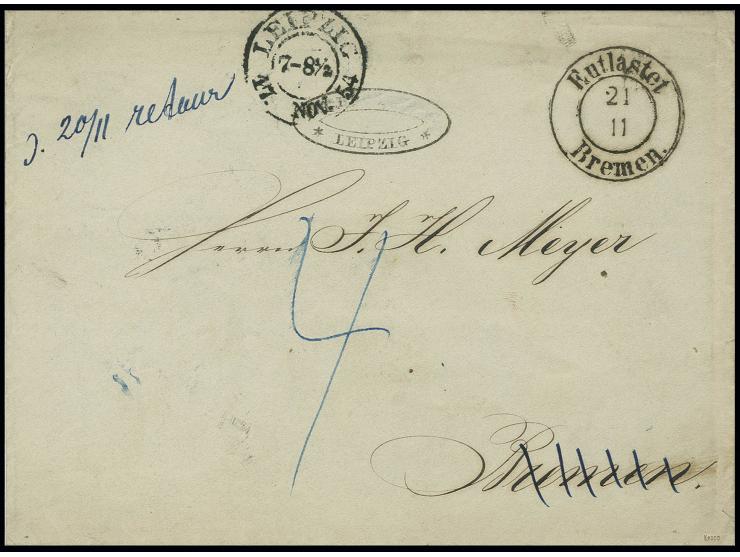 LEIPZIG
7-8½
17. NOV. 54
* LEIPZIG *
Entlastet
21
11
Bremen.
d. 20/11 retour
Herrn J. H. Meyer
4
Bremen.